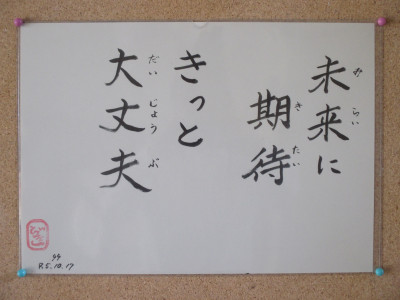 未来に
みらい
期待
きたい
きっと
大丈夫
だいじょうぶ
R.5.10.17